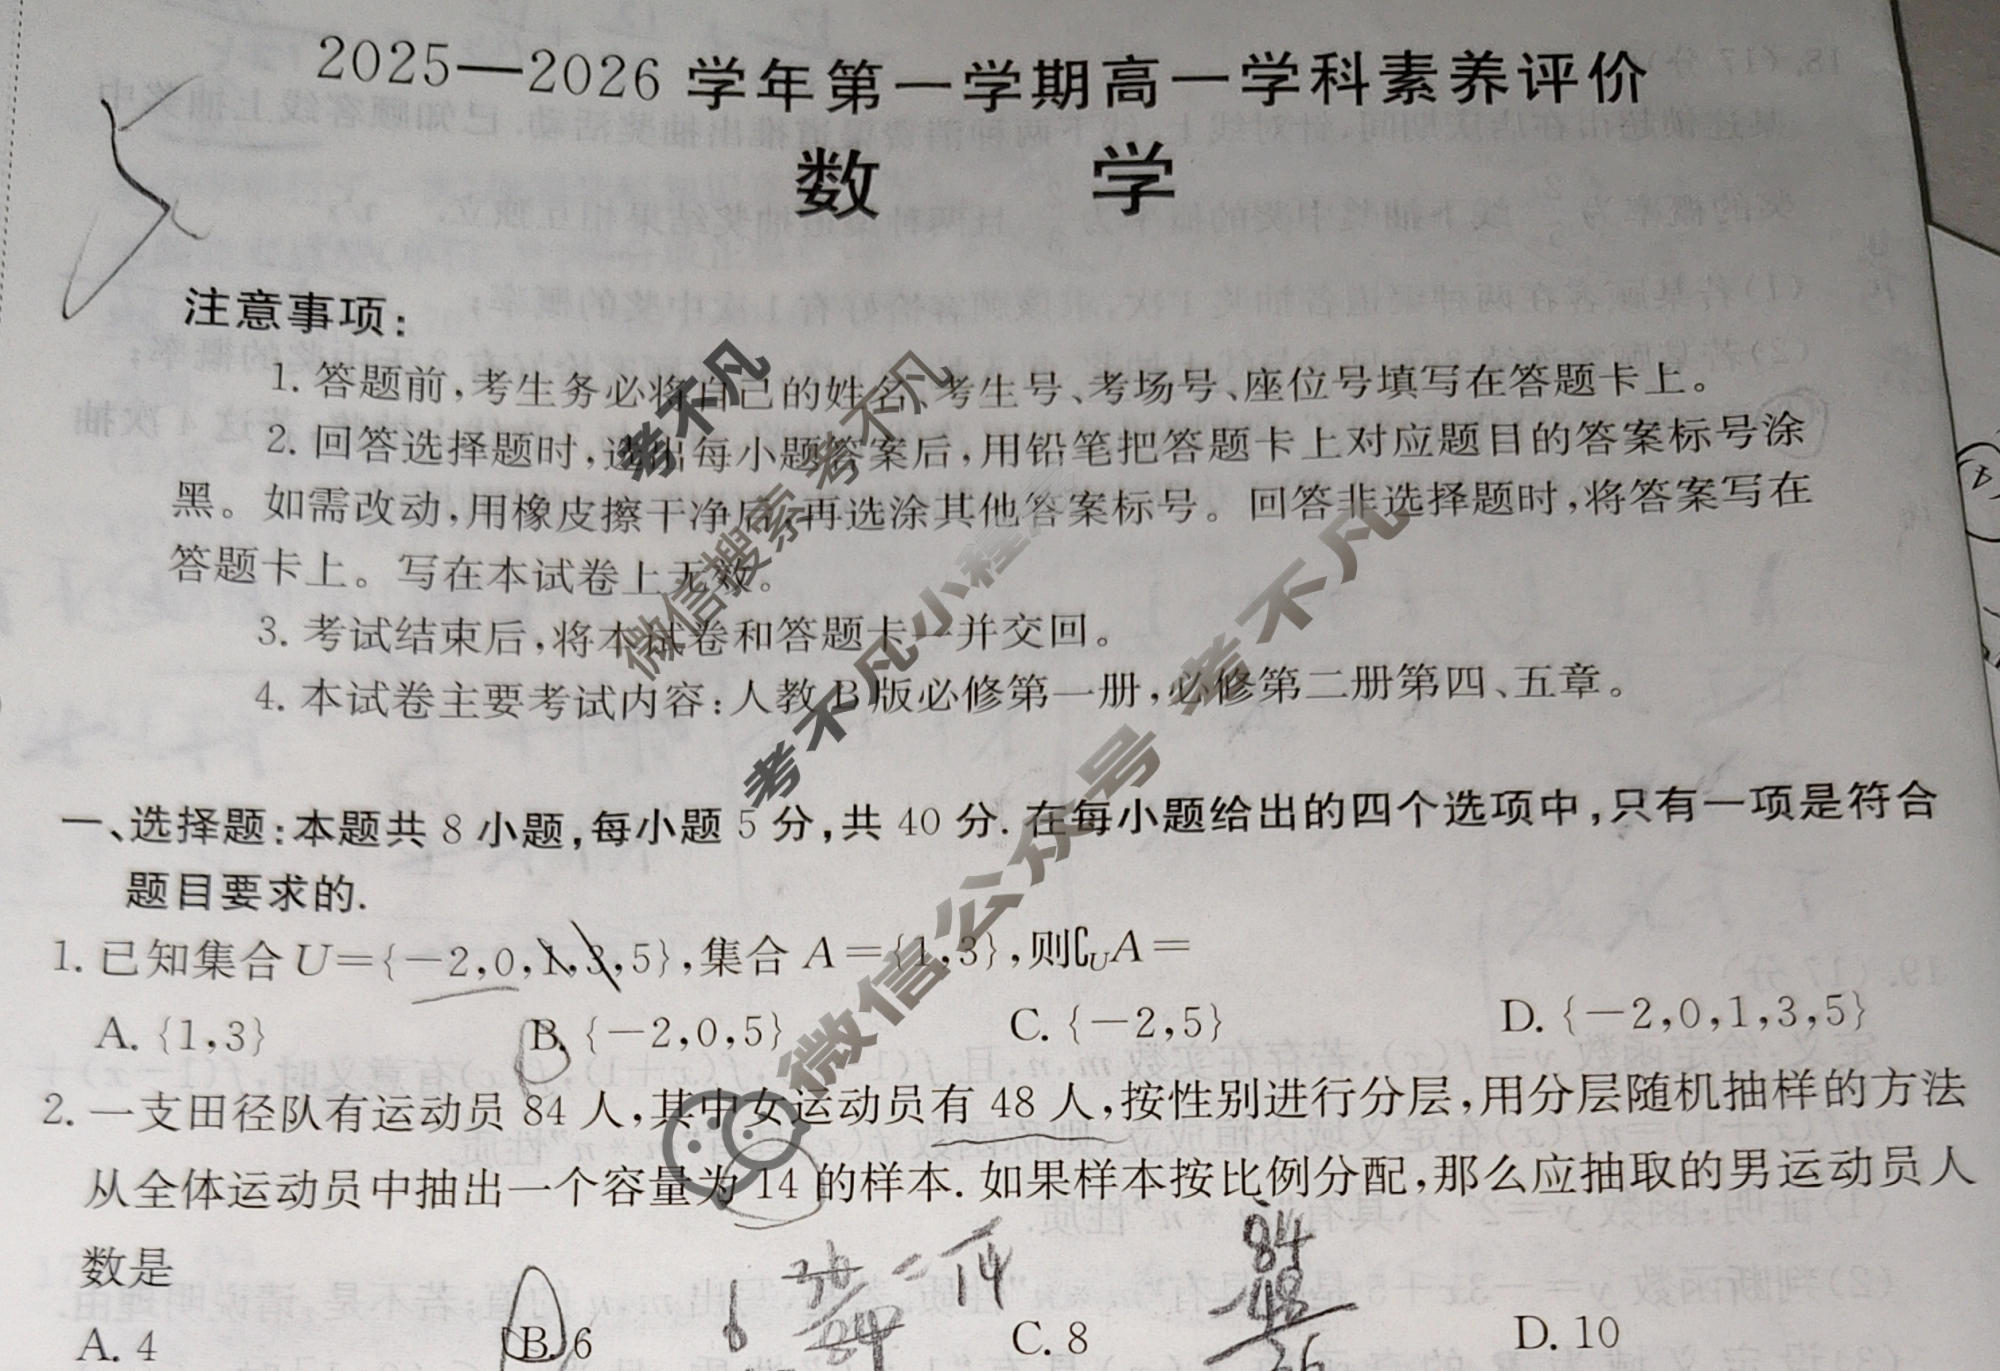 2025—2026 学年第一学期高一学科素养评价
数 学
注意事项:
1. 答题前,考生务必将自己的姓名、考生号、考场号、座位号填写在答题卡上。
2. 回答选择题时,选出每小题答案后,用铅笔把答题卡上对应题目的答案标号涂
黑。如需改动,用橡皮擦干净后,再选涂其他答案标号。回答非选择题时,将答案写在
答题卡上。写在本试卷上无效。
3. 考试结束后,将本试卷和答题卡一并交回。
4. 本试卷主要考试内容:人教 B 版必修第一册,必修第二册第四、五章。
一、选择题:本题共 8 小题,每小题 5 分,共 40 分. 在每小题给出的四个选项中,只有一项是符合
题目要求的.
1. 已知集合 U={-2,0,1,3,5},集合 A={1,3},则∁UA=
A. {1,3} B. {-2,0,5} C. {-2,5} D. {-2,0,1,3,5}
2. 一支田径队有运动员 84 人,其中女运动员有 48 人,按性别进行分层,用分层随机抽样的方法
从全体运动员中抽出一个容量为 14 的样本. 如果样本按比例分配,那么应抽取的男运动员人
数是
A. 4 B. 6 C. 8 D. 10
考不凡
微信搜索 考不凡
考不凡小程序
微信公众号 考不凡
6
36
84
= 14
84
48
36